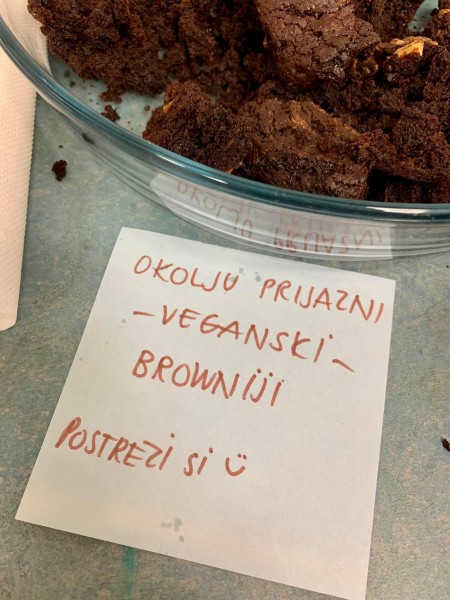 OKOLJU PRIJAZNI
- VEGANSKI -
BROWNIJI
POSTREZI SI ☺